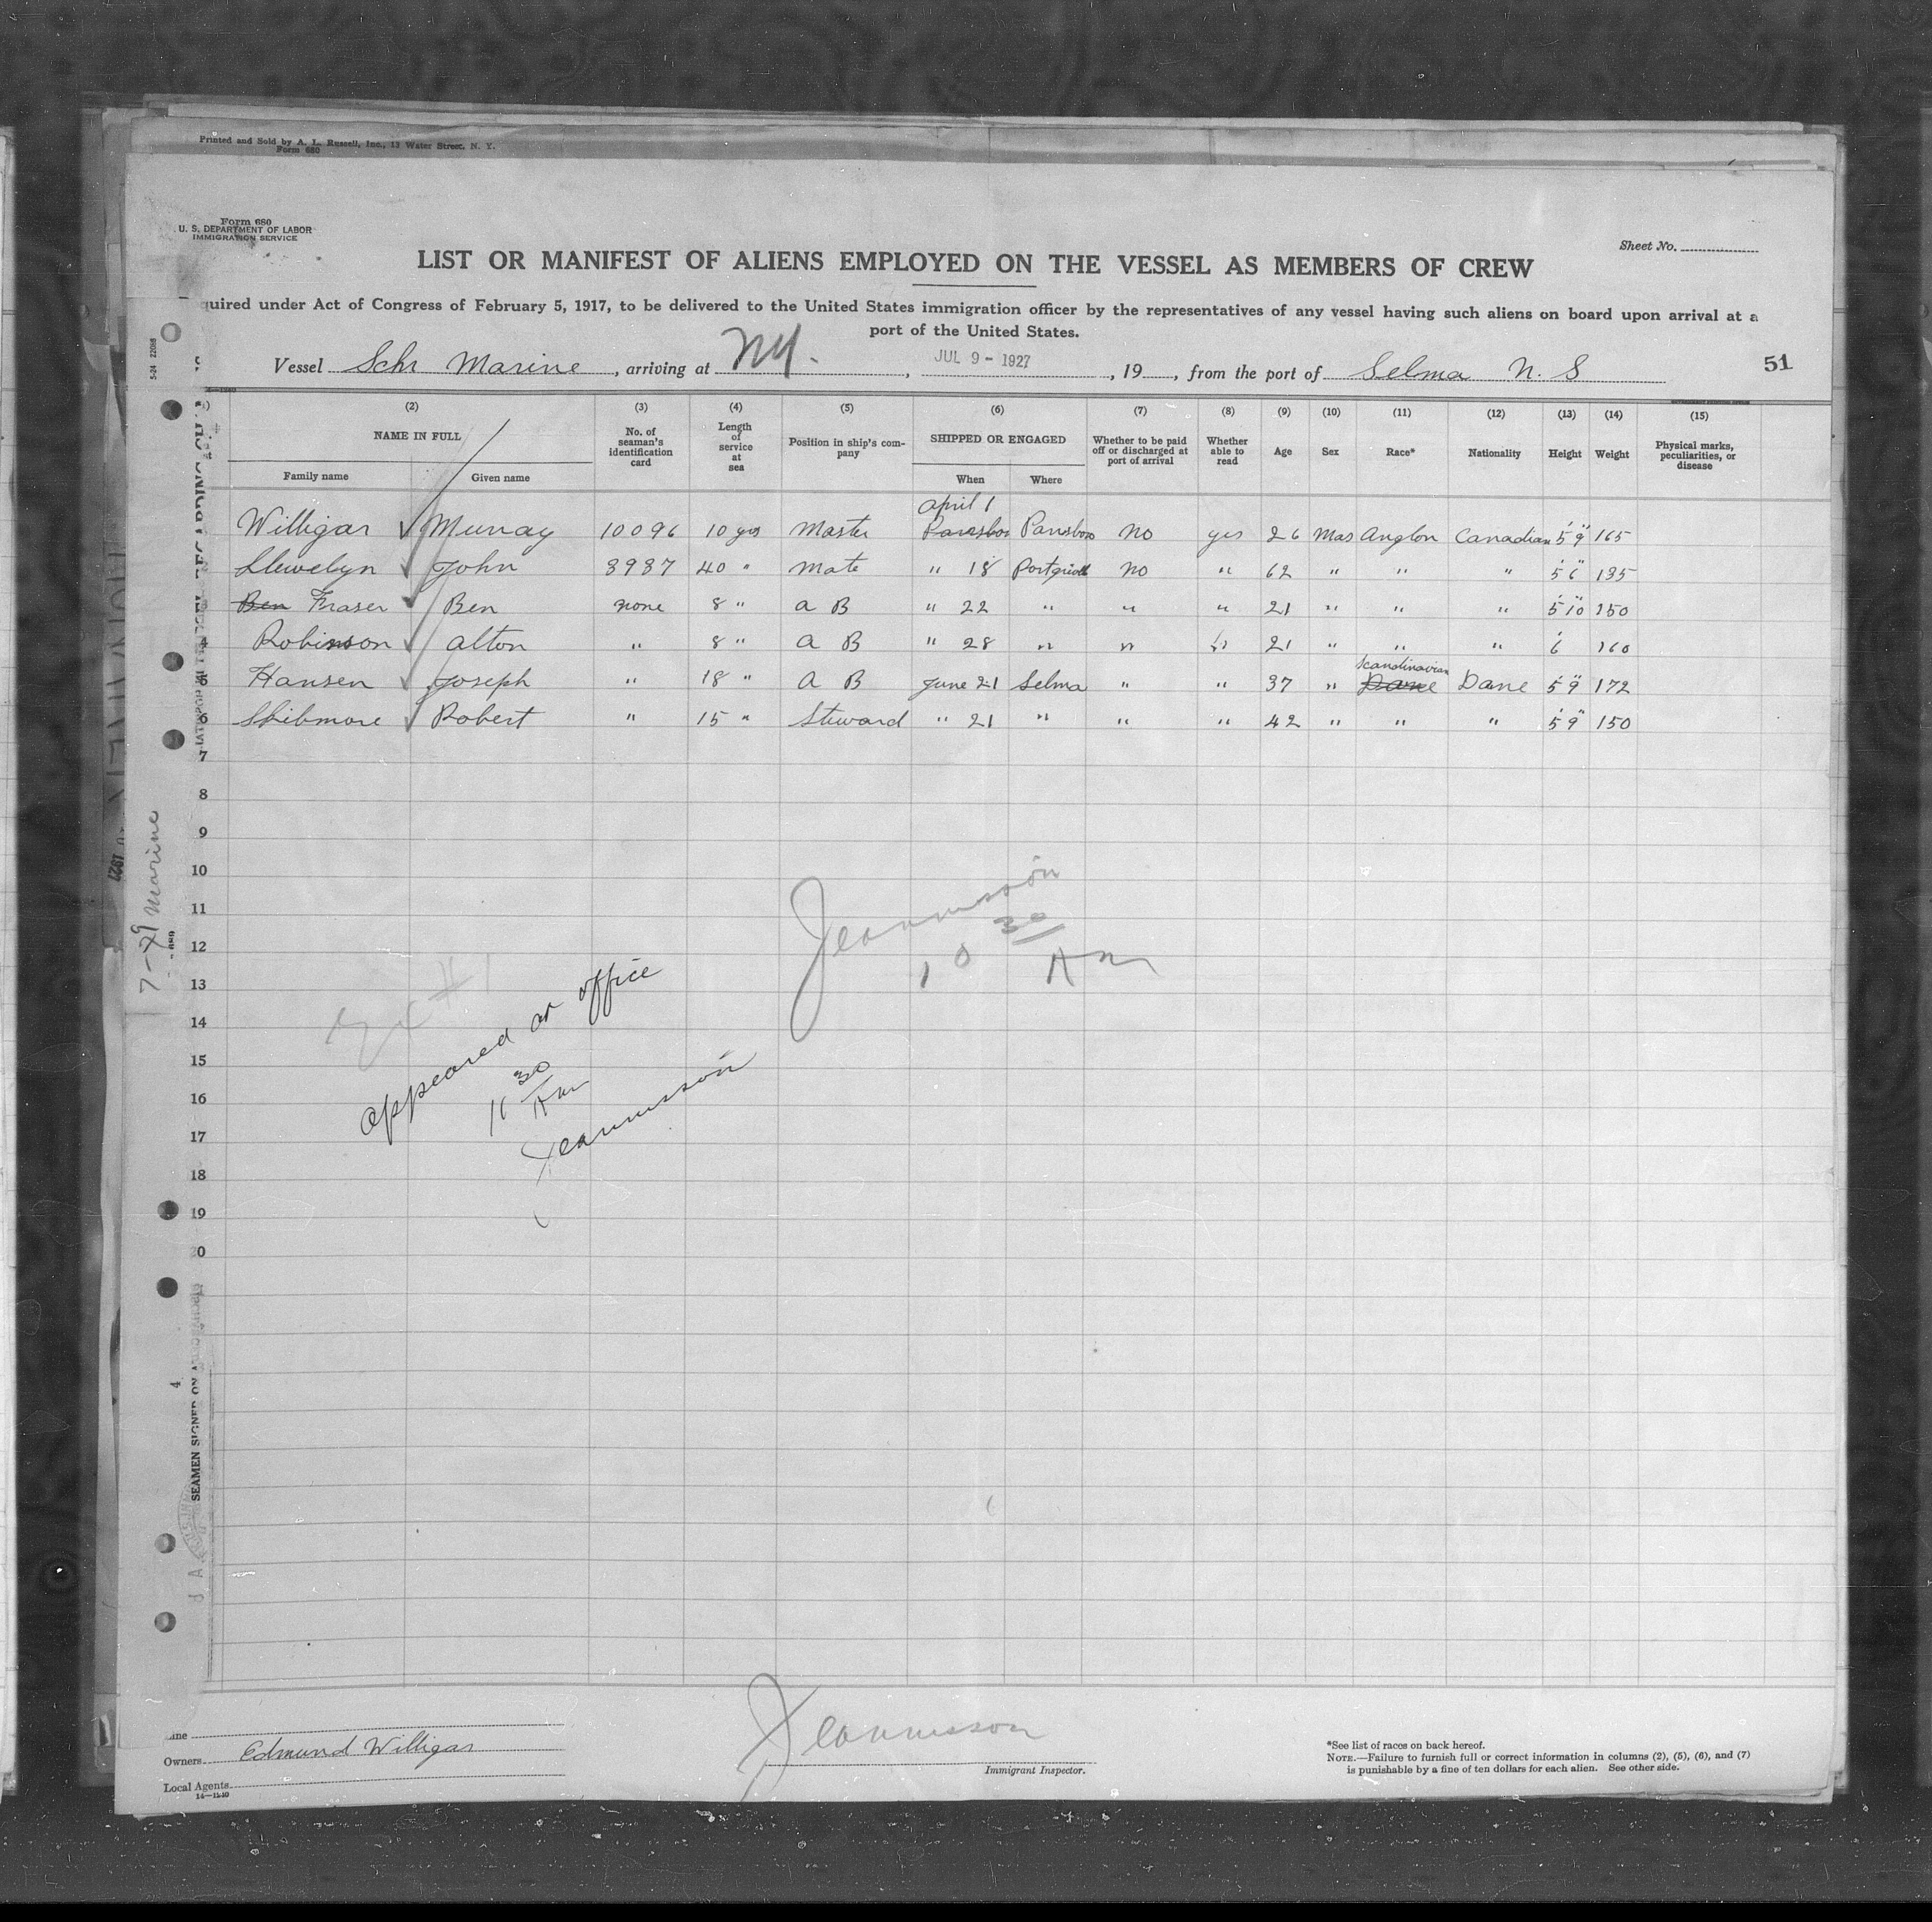 Printed and Sold by A. L. Russell, Inc., 13 Water Street, N. Y.
Form 680
Form 680
U. S. DEPARTMENT OF LABOR
IMMIGRATION SERVICE
Sheet No.
LIST OR MANIFEST OF ALIENS EMPLOYED ON THE VESSEL AS MEMBERS OF CREW
quired under Act of Congress of February 5, 1917, to be delivered to the United States immigration officer by the representatives of any vessel having such aliens on board upon arrival at a
port of the United States.
Vessel Schr Marine, arriving at NY., JUL 9 - 1927, 19, from the port of Selma N. S
51
(2) (3) (4) (5) (6) (7) (8) (9) (10) (11) (12) (13) (14) (15)
NAME IN FULL No. of seaman's identification card Length of service at sea Position in ship's company SHIPPED OR ENGAGED Whether to be paid off or discharged at port of arrival Whether able to read Age Sex Race* Nationality Height Weight Physical marks, peculiarities, or disease
Family name Given name When Where
April 1
Willigar Murray 10096 10 yrs Master Parrsboro Parrsboro No yes 26 Mas Anglon Canadian 5' 9" 165
Llewelyn John 3987 40 " Mate " 18 No " 62 " " " 5' 6" 135
Ben Fraser Ben none 8 " A B " 22 " " " 21 " " " 5' 10" 150
4 Robinson Alton " 8 " A B " 28 " " " 21 " " " 6' 160
Scandinavian
5 Hansen Joseph " 18 " A B June 21 Selma " " 37 " Dane Dane 5' 9" 172
6 Skibmore Robert " 15 " Steward " 21 " " " 42 " " " 5' 9" 150
7
8
9
10
11
12
13
14
15
16
17
18
19
20
7-29 Marine
Jeannisson
10 30 AM
Appeared at office
11 30 AM
Jeannisson
4
SEAMEN SIGNED ON
Line
Owners Edmund Willigar
Local Agents
14—1240
Jeannisson
Immigrant Inspector.
*See list of races on back hereof.
NOTE.—Failure to furnish full or correct information in columns (2), (5), (6), and (7)
is punishable by a fine of ten dollars for each alien. See other side.